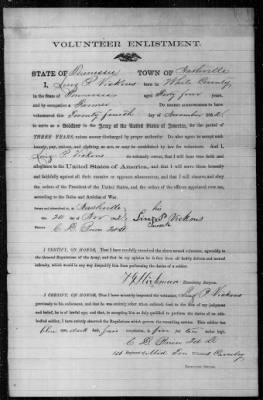 VOLUNTEER ENLISTMENT.
STATE OF Tennessee TOWN OF Nashville
I, P. Vickous born in White County,
in the State of Tennessee aged Forty four years,
and by occupation a Farmer DO HEREBY ACKNOWLEDGE to have
volunteered this Twenty fourth day of November 186
to serve as a Soldier in the Army of the United States of America, for the period of
THREE YEARS, unless sooner discharged by proper authority: Do also agree to accept such
bounty, pay, rations, and clothing, as are, or may be, established by law for volunteers. And I,
P. Vickous do solemnly swear, that I will bear true faith and
allegiance to the United States of America, and that I will serve them honestly
and faithfully against all their enemies or opposers whomsoever; and that I will observe and obey
the orders of the President of the United States, and the orders of the officers appointed over me,
according to the Rules and Articles of War.
Sworn and subscribed to, at Nashville his
this 24 day of Nov 186 P. Vickous
BEFORE C. D. mark
I CERTIFY, ON HONOR, That I have carefully examined the above named volunteer, agreeably to
the General Regulations of the Army, and that in my opinion he is free from all bodily defects and mental
infirmity, which would in any way disqualify him from performing the duties of a soldier.
Examining Surgeon.
I CERTIFY, ON HONOR, That I have minutely inspected the volunteer, P. Vickous
previously to his enlistment, and that he was entirely sober when enlisted; that to the best of my judgment
and belief, he is of lawful age; and that, in accepting him as duly qualified to perform the duties of an able-
bodied soldier, I have strictly observed the Regulations which govern the recruiting service. This soldier has
blue eyes, dark hair, fair complexion, is five feet ten inches high.
C. D.
Regiment of Cavalry
RECRUITING OFFICER.